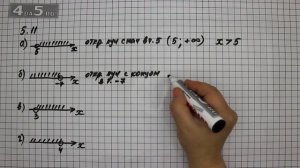 4на5.ru
5.11
а) 5 x откр. луч с нач в т. 5 (5; +∞) x > 5
б) -7 x откр. луч с концом
в т. -7
в) 3 x
г) 4 x